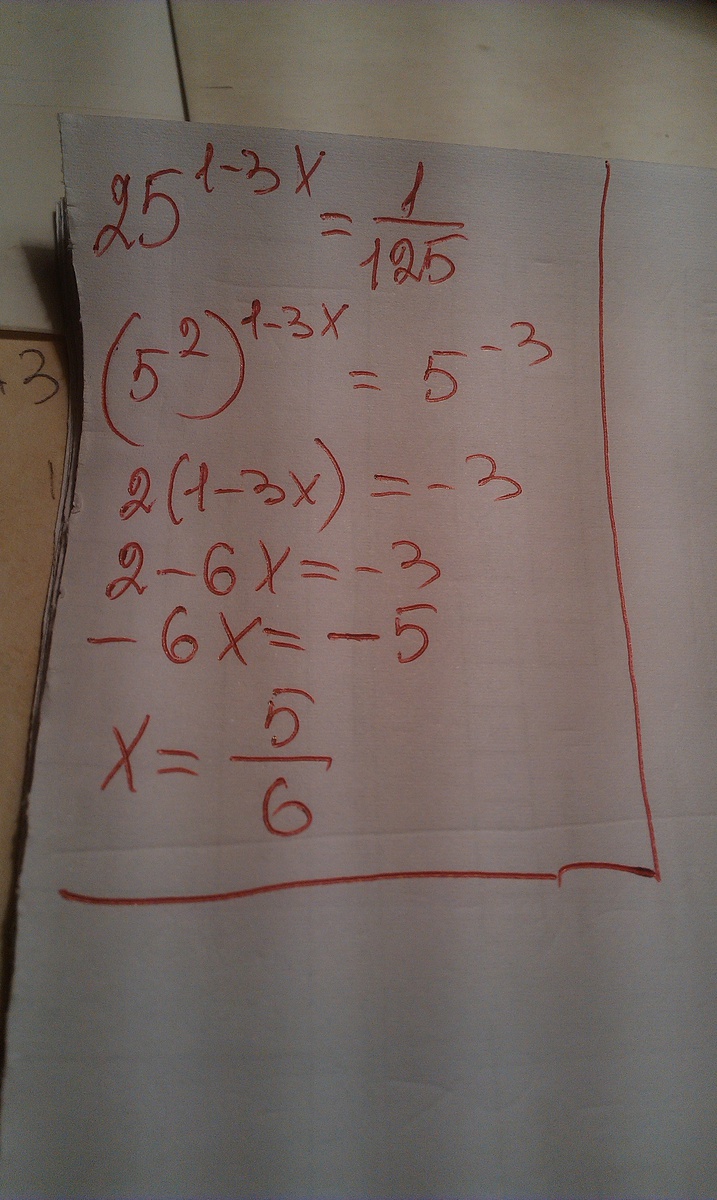 25^(1-3x) = 1/125
(5^2)^(1-3x) = 5^-3
2(1-3x) = -3
2-6x = -3
-6x = -5
x = 5/6
3